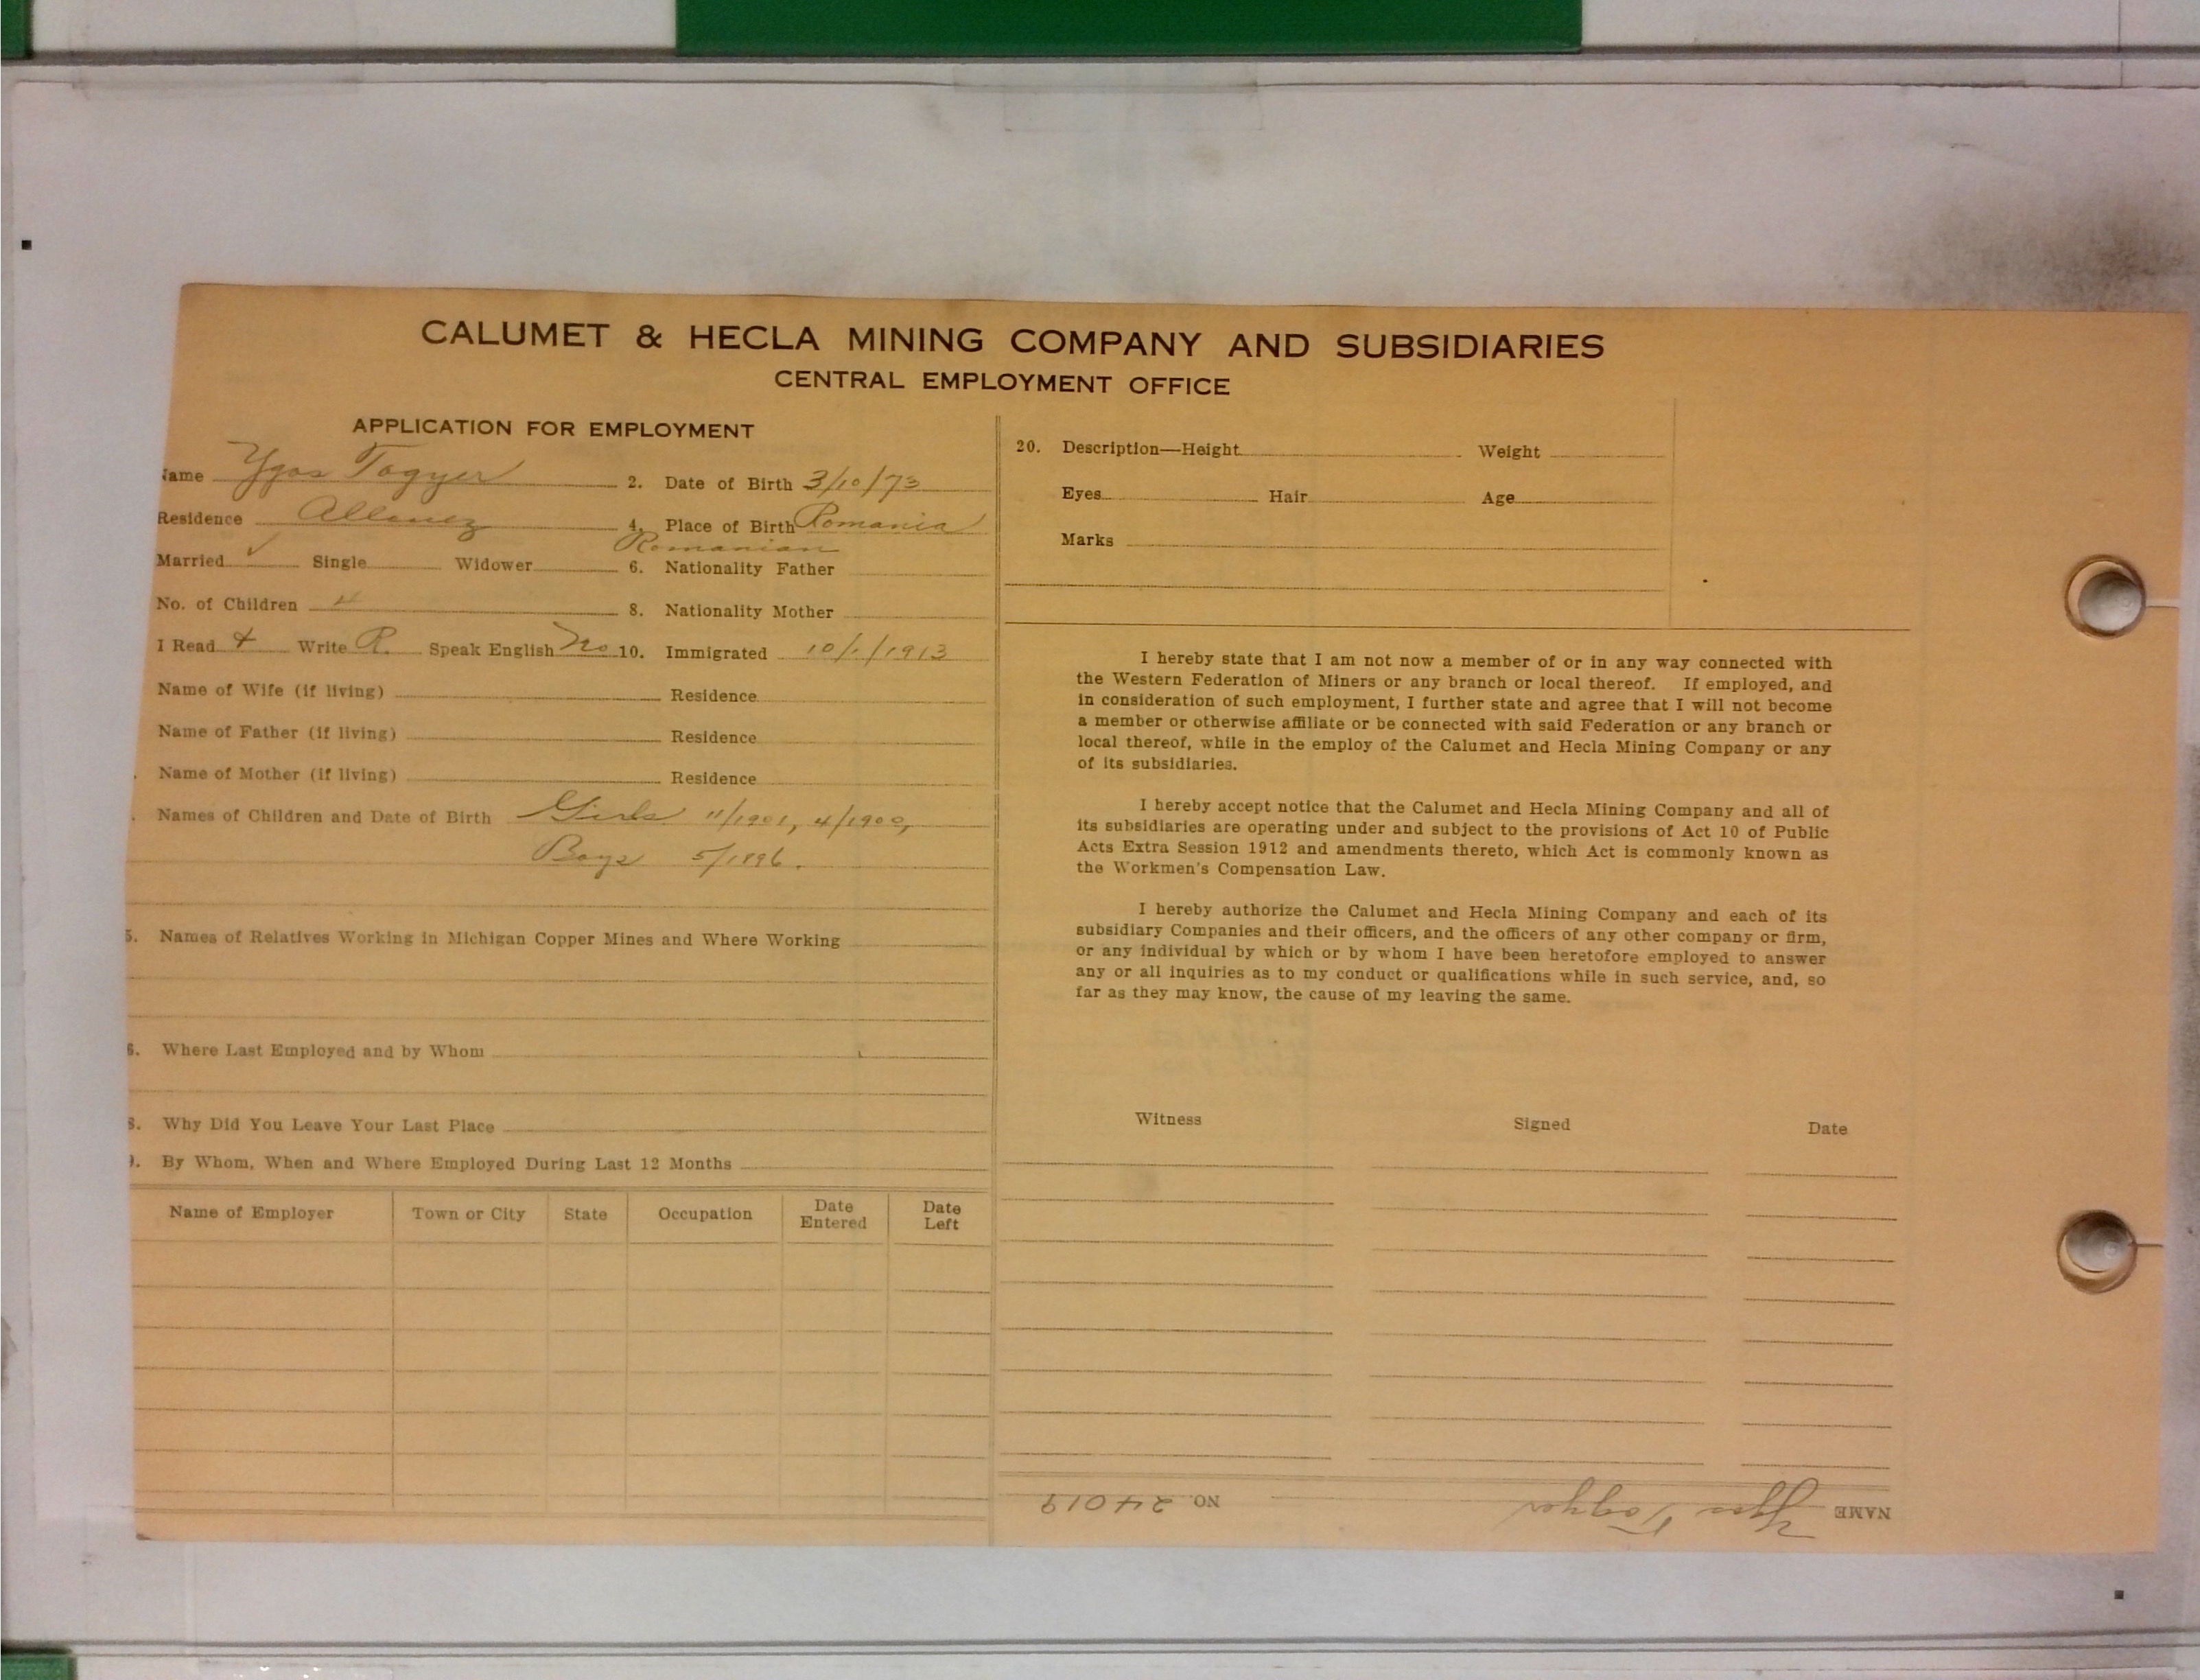 CALUMET & HECLA MINING COMPANY AND SUBSIDIARIES
CENTRAL EMPLOYMENT OFFICE
APPLICATION FOR EMPLOYMENT
Name Ygos Togyer 2. Date of Birth 3/10/73
Residence Allouez 4. Place of Birth Romania
Romanian
Married ✓ Single Widower 6. Nationality Father
No. of Children 4 8. Nationality Mother
I Read & Write R. Speak English No 10. Immigrated 10/1/1913
Name of Wife (if living) Residence
Name of Father (if living) Residence
Name of Mother (if living) Residence
Names of Children and Date of Birth Girls 11/1901, 4/1900,
Boys 5/1896.
5. Names of Relatives Working in Michigan Copper Mines and Where Working
6. Where Last Employed and by Whom
8. Why Did You Leave Your Last Place
9. By Whom, When and Where Employed During Last 12 Months
Name of Employer Town or City State Occupation Date Entered Date Left
20. Description—Height Weight
Eyes Hair Age
Marks
I hereby state that I am not now a member of or in any way connected with
the Western Federation of Miners or any branch or local thereof. If employed, and
in consideration of such employment, I further state and agree that I will not become
a member or otherwise affiliate or be connected with said Federation or any branch or
local thereof, while in the employ of the Calumet and Hecla Mining Company or any
of its subsidiaries.
I hereby accept notice that the Calumet and Hecla Mining Company and all of
its subsidiaries are operating under and subject to the provisions of Act 10 of Public
Acts Extra Session 1912 and amendments thereto, which Act is commonly known as
the Workmen's Compensation Law.
I hereby authorize the Calumet and Hecla Mining Company and each of its
subsidiary Companies and their officers, and the officers of any other company or firm,
or any individual by which or by whom I have been heretofore employed to answer
any or all inquiries as to my conduct or qualifications while in such service, and, so
far as they may know, the cause of my leaving the same.
Witness Signed Date
NAME Ygos Togyer NO. 24019